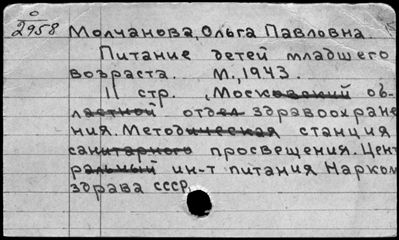 2958
Молчанова, Ольга Павловна.
Питание детей младшего
возраста. М., 1943.
11 стр. (Московский об-
ластной отдел здравоохране
ния. Методическая станция
санитарного просвещения. Цент
ральный ин-т питания Нарком
здрава СССР